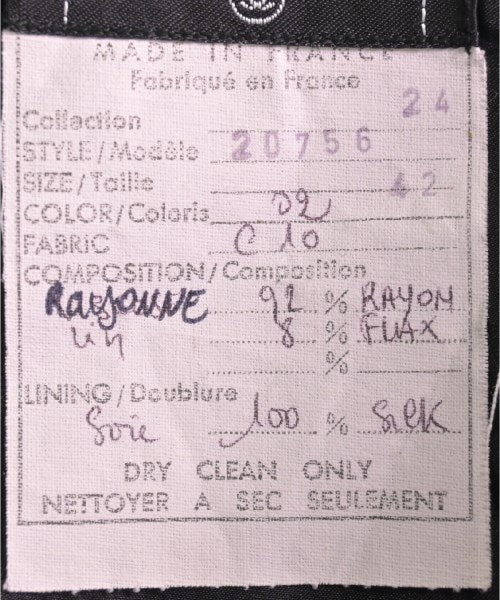 MADE IN FRANCE
Fabriqué en France
Collection 24
STYLE/Modèle 20756
SIZE/Taille 42
COLOR/Coloris 02
FABRIC C 10
COMPOSITION/Composition
RAYONNE 92 % RAYON
lin 8 % FLAX
%
LINING/Doublure
Soie 100 % SILK
DRY CLEAN ONLY
NETTOYER A SEC SEULEMENT